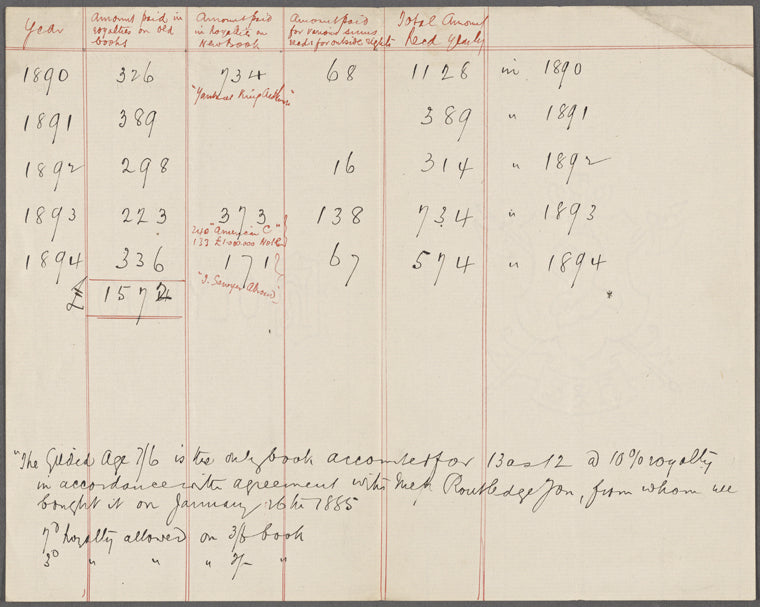 Year | Amount paid in royalties on old books | Amount paid in royalties on New Book | Amount paid for various sums recd for outside rights | Total Amount Recd yearly
1890 326 734 68 1128 in 1890
"Yankee at King Arthurs"
1891 389 389 " 1891
1892 298 16 314 " 1892
1893 223 373 138 734 " 1893
240 "American C"
133 £1.000.000 Note
1894 336 171 67 574 " 1894
"T. Sawyer Abroad"
£ 1572
"The Gilded Age 7/6 is the only book accounted for 13 as 12 @ 10% royalty
in accordance with agreement with Mess Routledge Son, from whom we
bought it on January 26th 1885
7D Royalty allowed on 3/6 book
3D " " " 2/- "